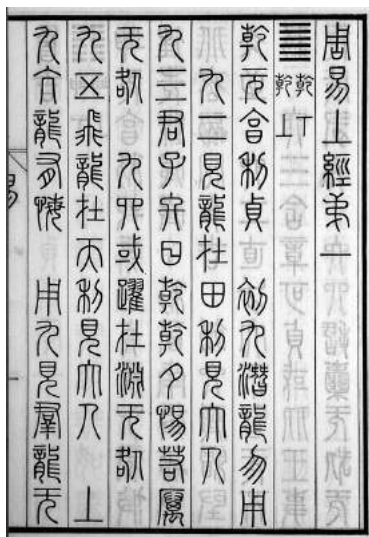 周易上經弟一
䷀ 乾下 乾上
乾元亨利貞 初九潛龍勿用
九二見龍在田利見大人
九三君子終日乾乾夕惕若厲
无咎 九四或躍在淵无咎
九五飛龍在天利見大人 上
九亢龍有悔 用九見羣龍无